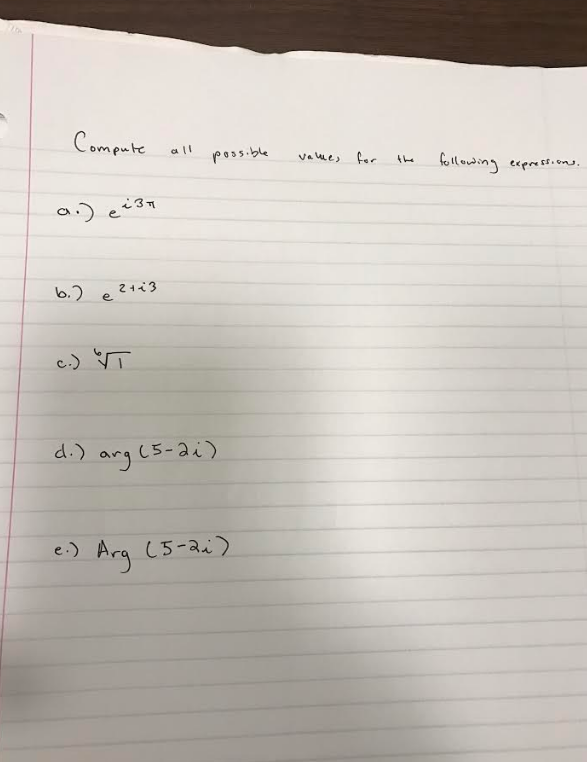 Compute all possible values for the following expressions.
a.) e^{i3π}
b.) e^{2+i3}
c.) ⁶√1
d.) arg (5-2i)
e.) Arg (5-2i)